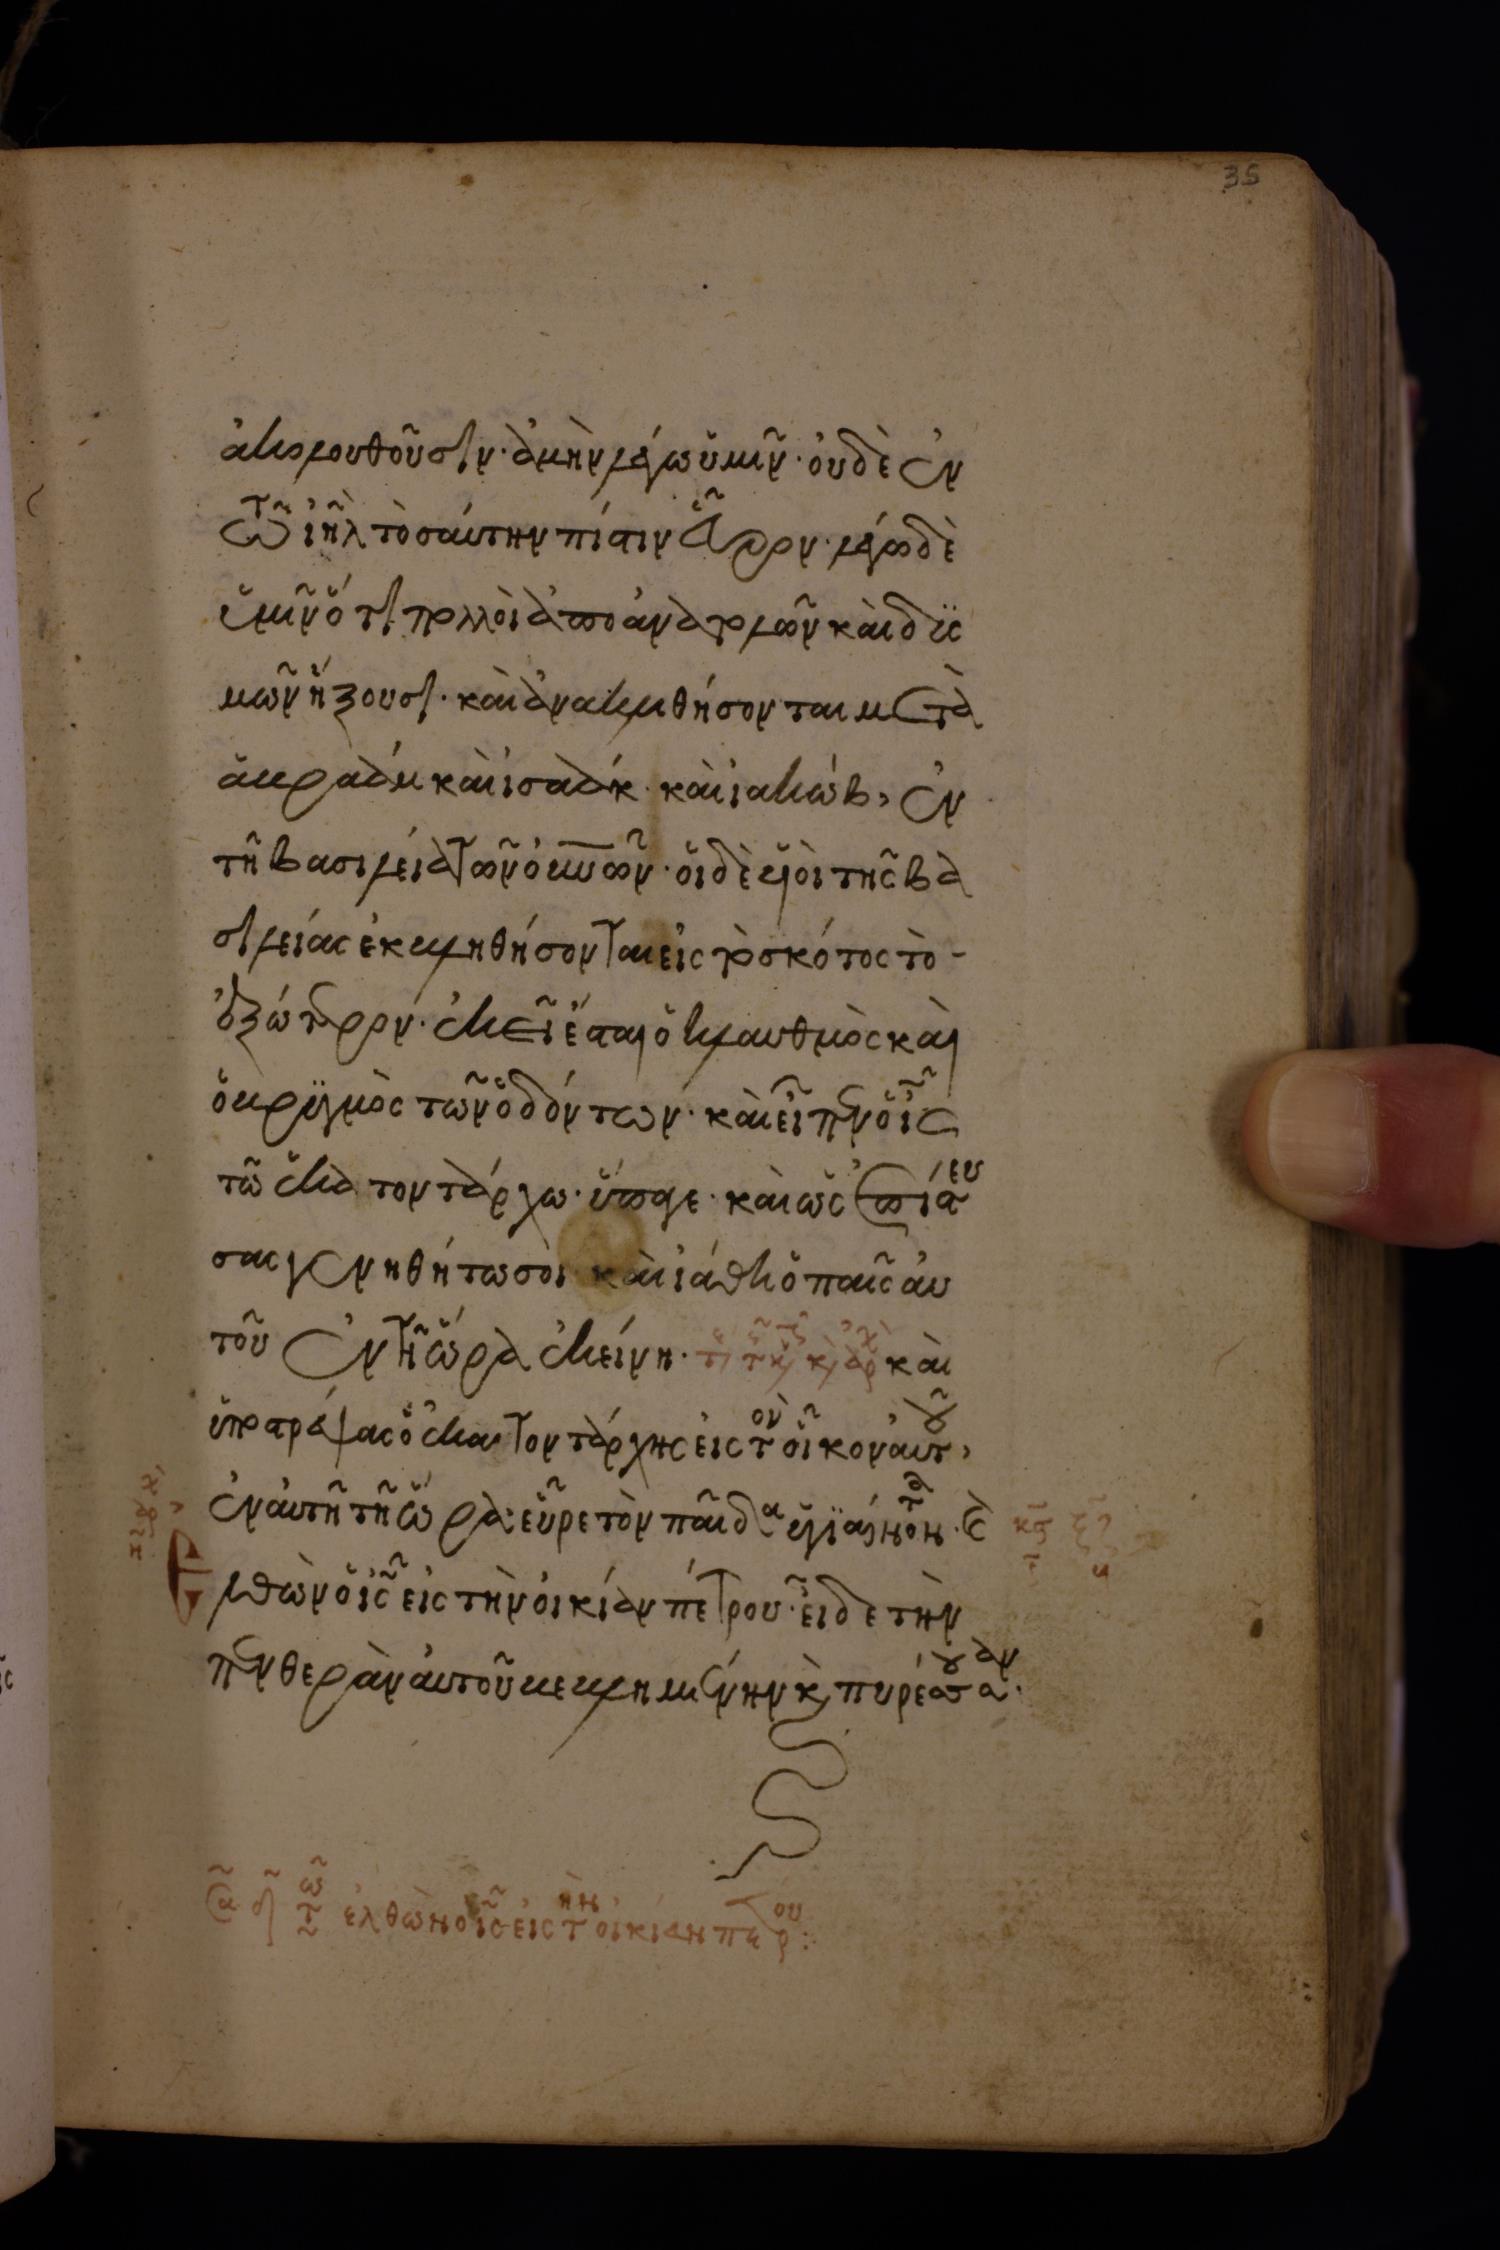 35
ἀκολουθοῦσιν· ἀμὴν λέγω ὑμῖν· οὐδὲ ἐν
τῶ ἰῆλ τοσαύτην πίστιν εὗρον· λέγω δὲ
ὑμῖν ὅτι πολλοὶ ἀπὸ ἀνατολῶν καὶ δυσ
μῶν ἥξουσι· καὶ ἀνακλιθήσονται μετὰ
ἀβραὰμ καὶ ἰσαὰκ· καὶ ἰακώβ, ἐν
τῆ βασιλεία τῶν οὐνῶν· οἱ δὲ υἱοὶ τῆς βα
σιλείας ἐκβληθήσονται εἰς τὸ σκότος τὸ
ἐξώτερον· ἐκεῖ ἔσται ὁ κλαυθμὸς καὶ
ὁ βρυγμὸς τῶν ὀδόντων· καὶ εἶπεν ὁ ις
τῶ ἑκατοντάρχω· ὕπαγε· καὶ ὡς ἐπίστευ
σας γενηθήτω σοι· καὶ ἰάθη ὁ παῖς αὐ
τοῦ ἐν τῆ ὥρα ἐκείνη· καὶ
ὑποστρέψας ὁ ἑκατοντάρχης εἰς τὸν οἶκον αὐτοῦ,
ἐν αὐτῆ τῆ ὥρα· εὗρε τὸν παῖδα ὑγιαίνοντα· ἐ
λθὼν ὁ ις εἰς τὴν οἰκίαν πέτρου· εἶδε τὴν
πενθερὰν αὐτοῦ βεβλημένην κ πυρέσσουσαν·
ελθὼν ο ις εις τὴν οικίαν πετρου: